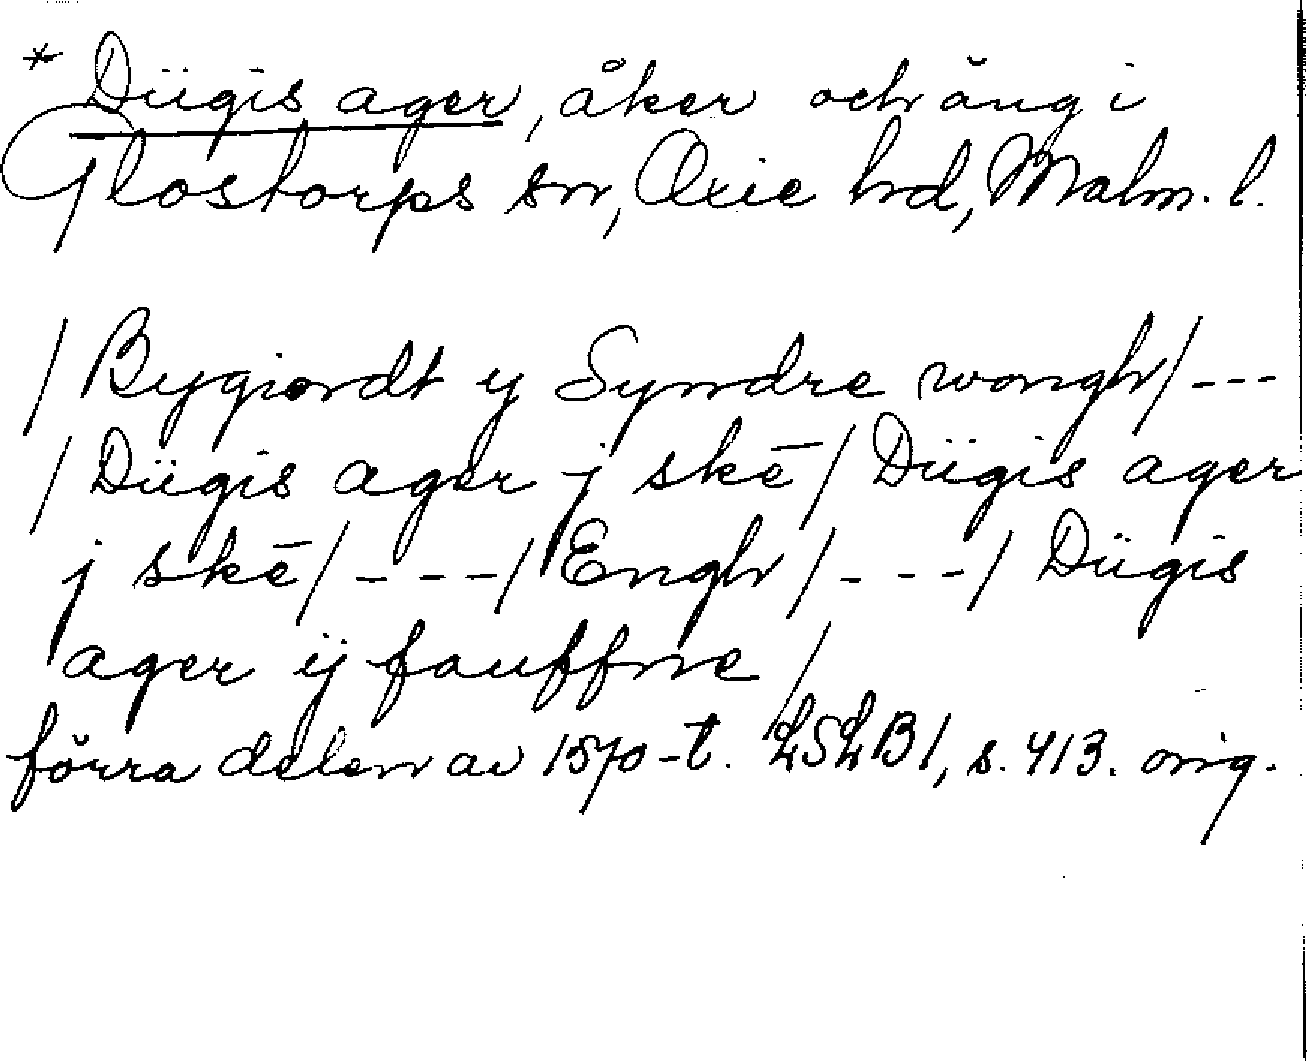 * Dügis ager, åker och äng i
Glostorps sn, Oxie hd, Malm. l.
/ Bygiordt y Syndre wongh / ---
/ Dügis ager j skē / Dügis ager
j skē / - - - / Engh / - - - / Dügis
ager ÿ fauffne /
förra delen av 1570-t. LSLB 1, s. 413. orig.